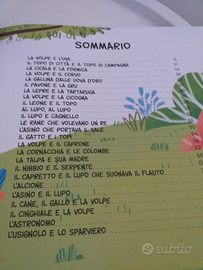 SOMMARIO
LA VOLPE E L'UVA
IL TOPO DI CITTÀ E IL TOPO DI CAMPAGNA
LA CICALA E LA FORMICA
LA VOLPE E IL CORVO
LA GALLINA DALLE UOVA D'ORO
IL PAVONE E LA GRU
LA LEPRE E LA TARTARUGA
LA VOLPE E LA CICOGNA
IL LEONE E IL TOPO
AL LUPO, AL LUPO
IL LUPO E L'AGNELLO
LE RANE CHE VOLEVANO UN RE
L'ASINO CHE PORTAVA IL SALE
IL GATTO E I TOPI
LA VOLPE E IL CAPRONE
LA CORNACCHIA E LE COLOMBE
LA TALPA E SUA MADRE
IL NIBBIO E IL SERPENTE
IL CAPRETTO E IL LUPO CHE SUONAVA IL FLAUTO
L'ALCIONE
L'ASINO E IL LUPO
IL CANE, IL GALLO E LA VOLPE
IL CINGHIALE E LA VOLPE
L'ASTRONOMO
L'USIGNOLO E LO SPARVIERO
subito